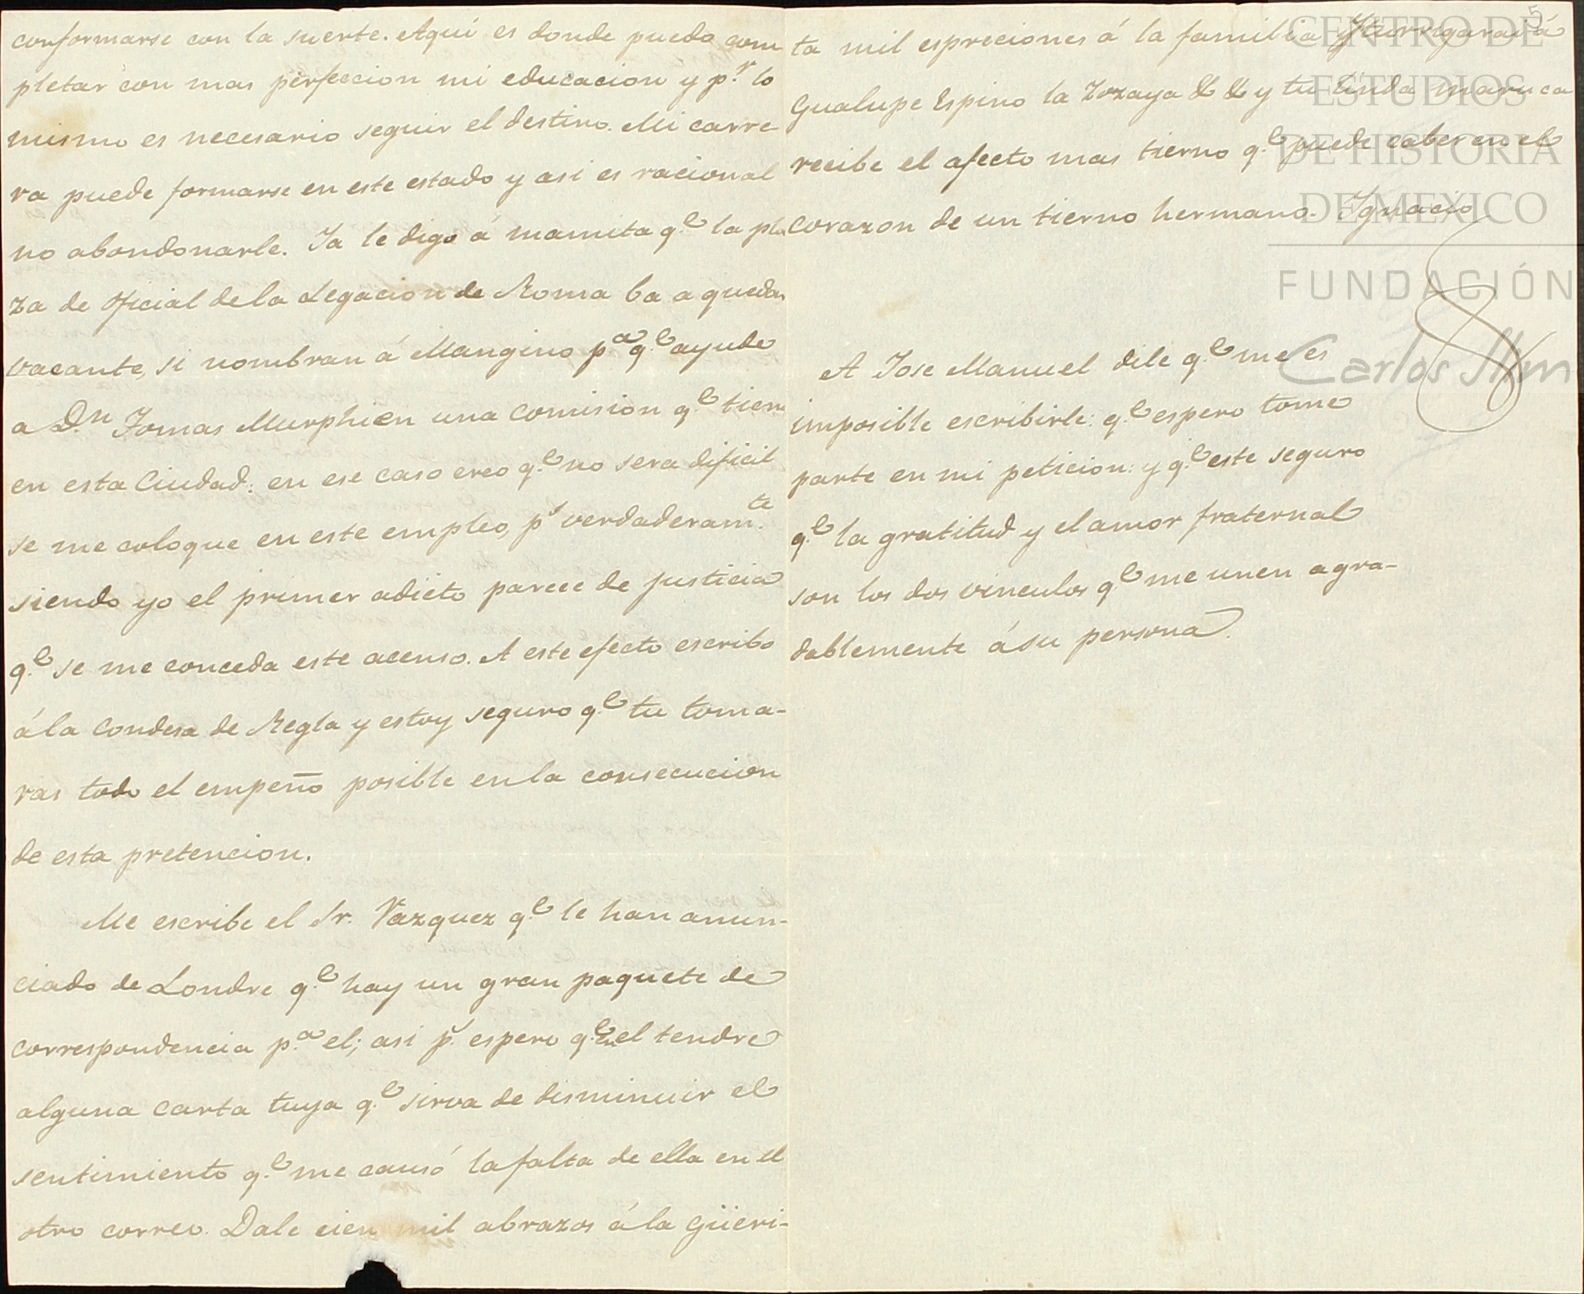 conformarse con la suerte. Aqui es donde puedo com
pletar con mas perfeccion mi educacion y p.r lo
mismo es necesario seguir el destino. Mi carre-
ra puede formarse en este estado y asi es racional
no abondonarle. Ya le digo á mamita q.e la pla
za de oficial de la Legacion de Roma ba a quedar
vacante, si nombran á Mangino p.a q.e ayude
a D.n Tomas Murphi en una comision q.e tiene
en esta Ciudad: en ese caso creo q.e no sera dificil
se me coloque en este empleo, p.s verdaderam.te
siendo yo el primer adicto parece de justicia
q.e se me conceda este acenso. A este efecto escribo
á la Condesa de Regla y estoy seguro q.e tu toma-
ras todo el empeño posible en la consecucion
de esta pretencion.
Me escribe el Sr. Vazquez q.e le han anun-
ciado de Londre q.e hay un gran paquete de
correspondencia p.a el; asi p.s espero q.e en el tendre
alguna carta tuya q.e sirva de disminuir el
sentimiento q.e me causó la falta de ella en el
otro correo. Dale cien mil abrazos á la Güeri-
5
ta mil espreciones á la familia Yturrigaray á
Gualupe Espino la Zozaya & & y tu linda maruca
recibe el afecto mas tierno q.e puede caber en el
corazon de un tierno hermano. Ygnacio
A Jose Manuel dile q.e me es
imposible escribirle: q.e espero tome
parte en mi peticion: y q.e este seguro
q.e la gratitud y el amor fraternal
son los dos vinculos q.e me unen agra-
dablemente á su persona.
CENTRO DE
ESTUDIOS
DE HISTORIA
DE MEXICO
FUNDACIÓN
Carlos Slim